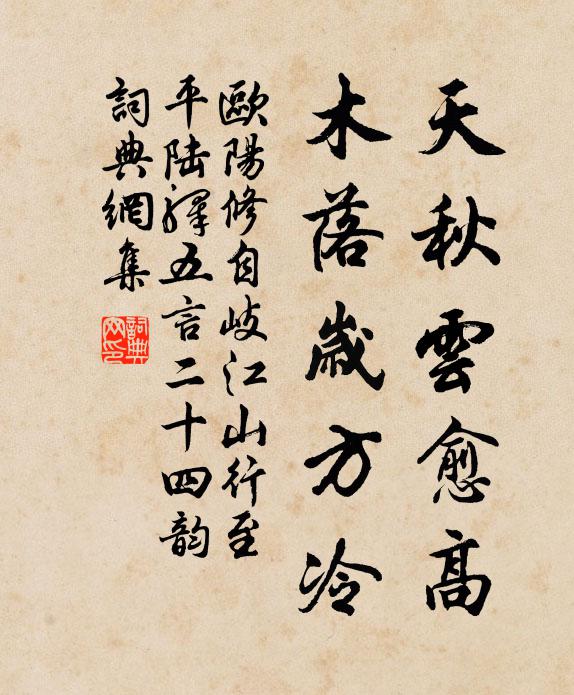 天秋雲愈高
木落歲方冷
歐陽修自岐江山行至
平陆驛五言二十四韵
詞典網集
詞典网印